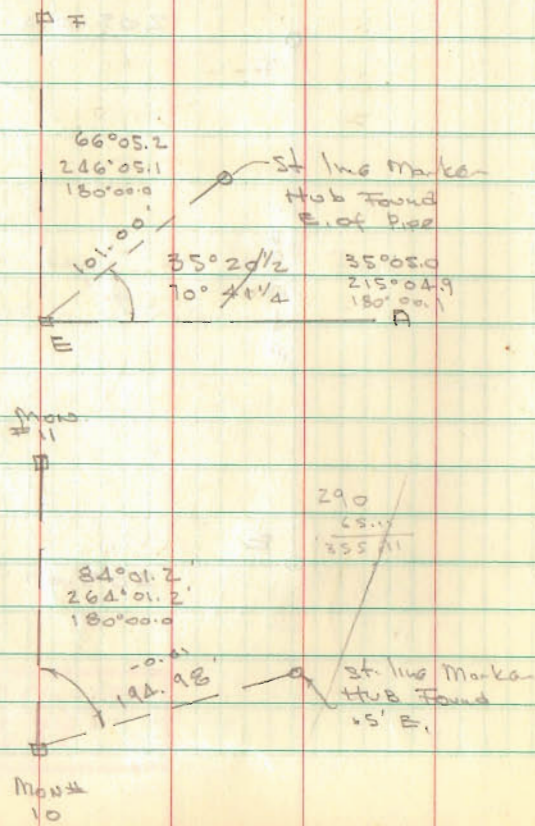 F
66°05.2
246°05.1
180°00.0
St line Marker
Hub Found
E. of Pipe
101.00'
35°20 1/2
70° 41 1/4
35°05.0
215°04.9
180°00.1
A
E
Mon.
# 11
290
65.11
355.11
84°01.2'
264°01.2'
180°00.0
194.98'
St. line Marker
HUB Found
.5' E.
Mon#
10